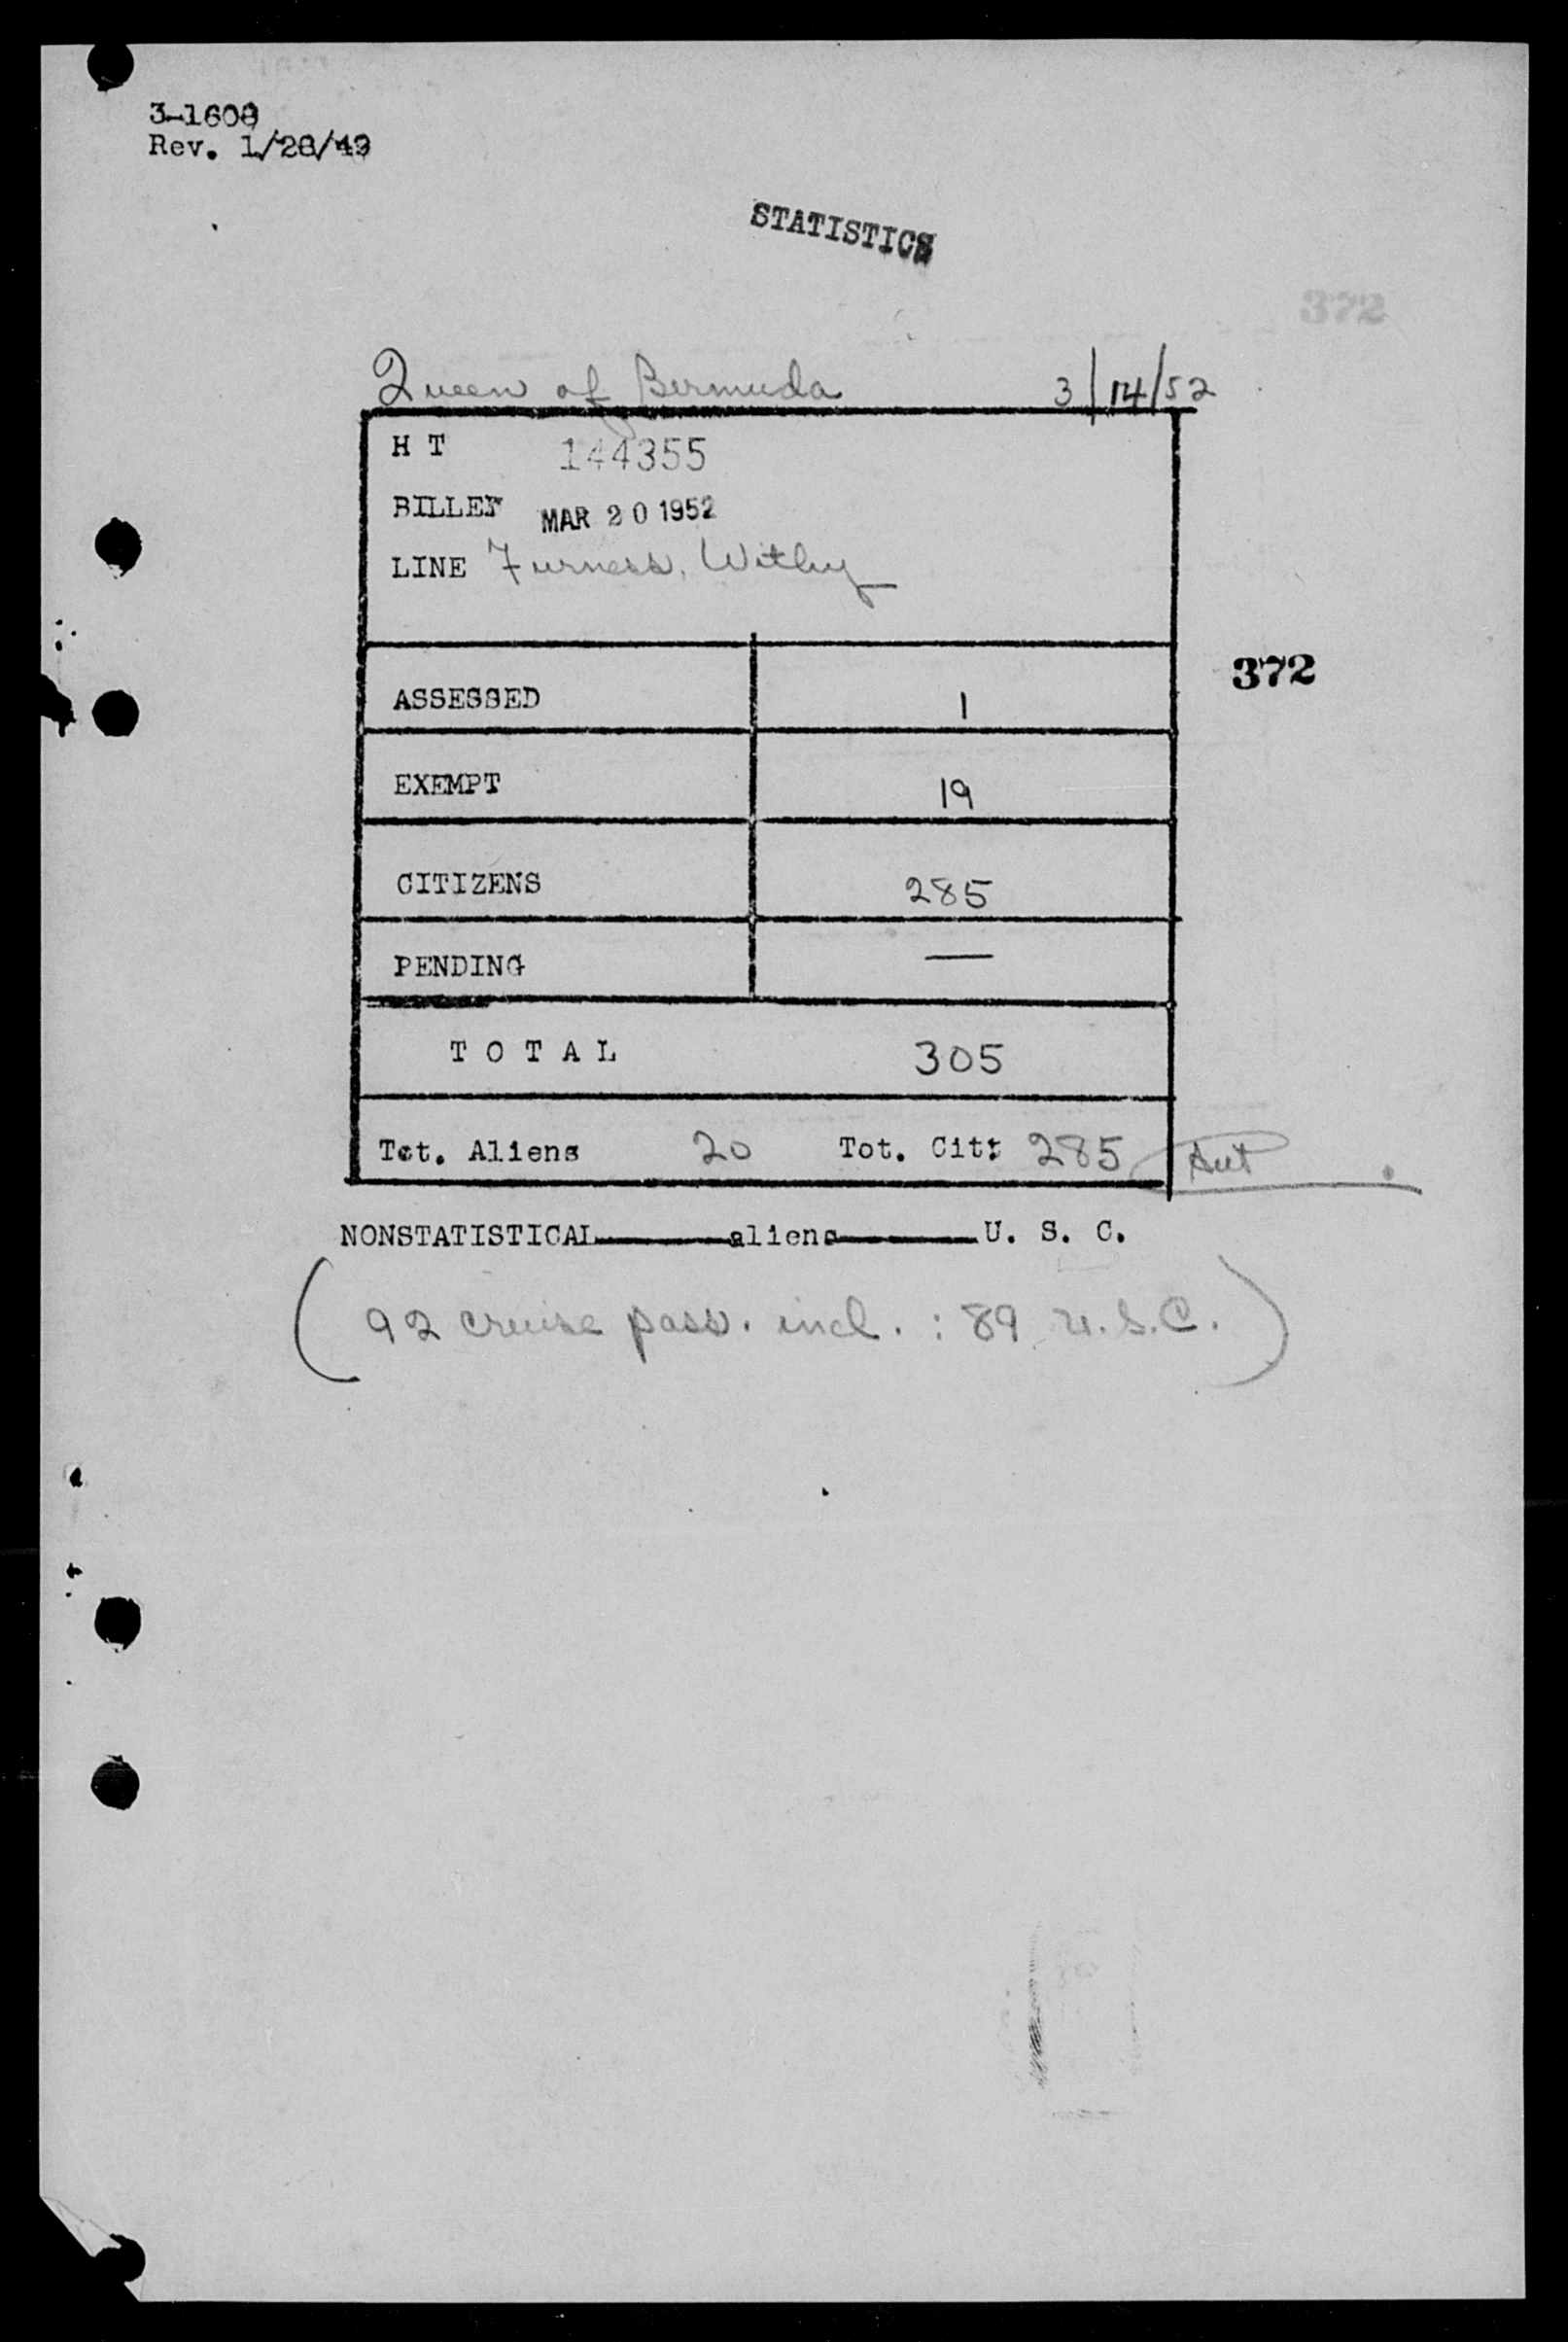 3-1608
Rev. 1/28/49
STATISTICS
372
Queen of Bermuda 3/14/52
H T 144355
BILLET MAR 20 1952
LINE Furness, Withy
372
ASSESSED 1
EXEMPT 19
CITIZENS 285
PENDING —
T O T A L 305
Tot. Aliens 20 Tot. Cit: 285
NONSTATISTICAL aliens U. S. C.
(92 cruise pass. incl. : 89 U.S.C.)